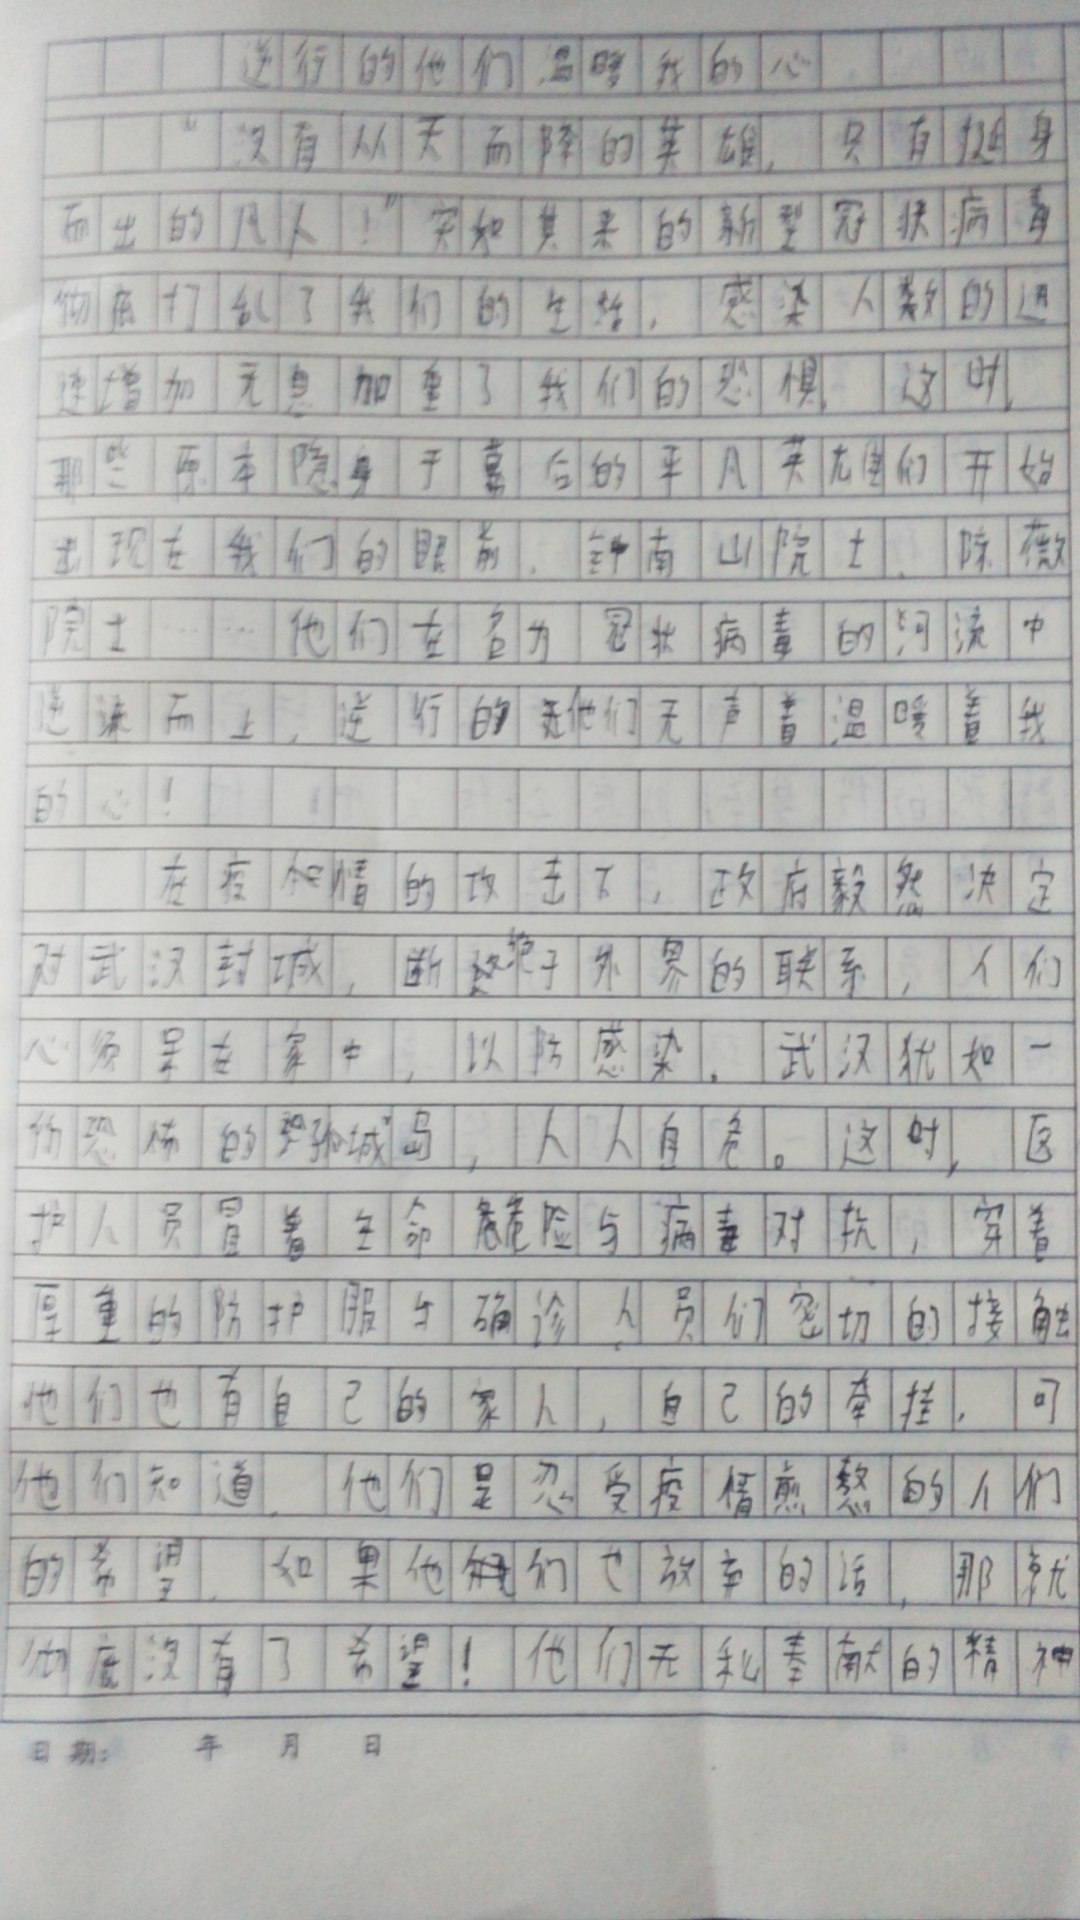 逆行的他们温暖我的心
“没有从天而降的英雄，只有挺身
而出的凡人！”突如其来的新型冠状病毒
彻底打乱了我们的生活，感染人数的迅
速增加无息加重了我们的恐惧，这时，
那些原本隐身于幕后的平凡英雄们开始
出现在我们的眼前，钟南山院士、陈薇
院士……他们在名为冠状病毒的河流中
逆流而上，逆行的他们无声着温暖着我
的心！
在疫情的攻击下，政府毅然决定
对武汉封城，断绝于外界的联系，人们
必须呆在家中，以防感染。武汉犹如一
恐怖的孤岛，人人自危。这时，医
护人员冒着生命危险与病毒对抗，穿着
厚重的防护服与确诊人员们密切的接触
他们也有自己的家人，自己的牵挂，可
他们知道，他们是忍受疫情煎熬的人们
的希望，如果他们也放弃的话，那就
彻底没有了希望！他们无私奉献的精神
日期： 年 月 日